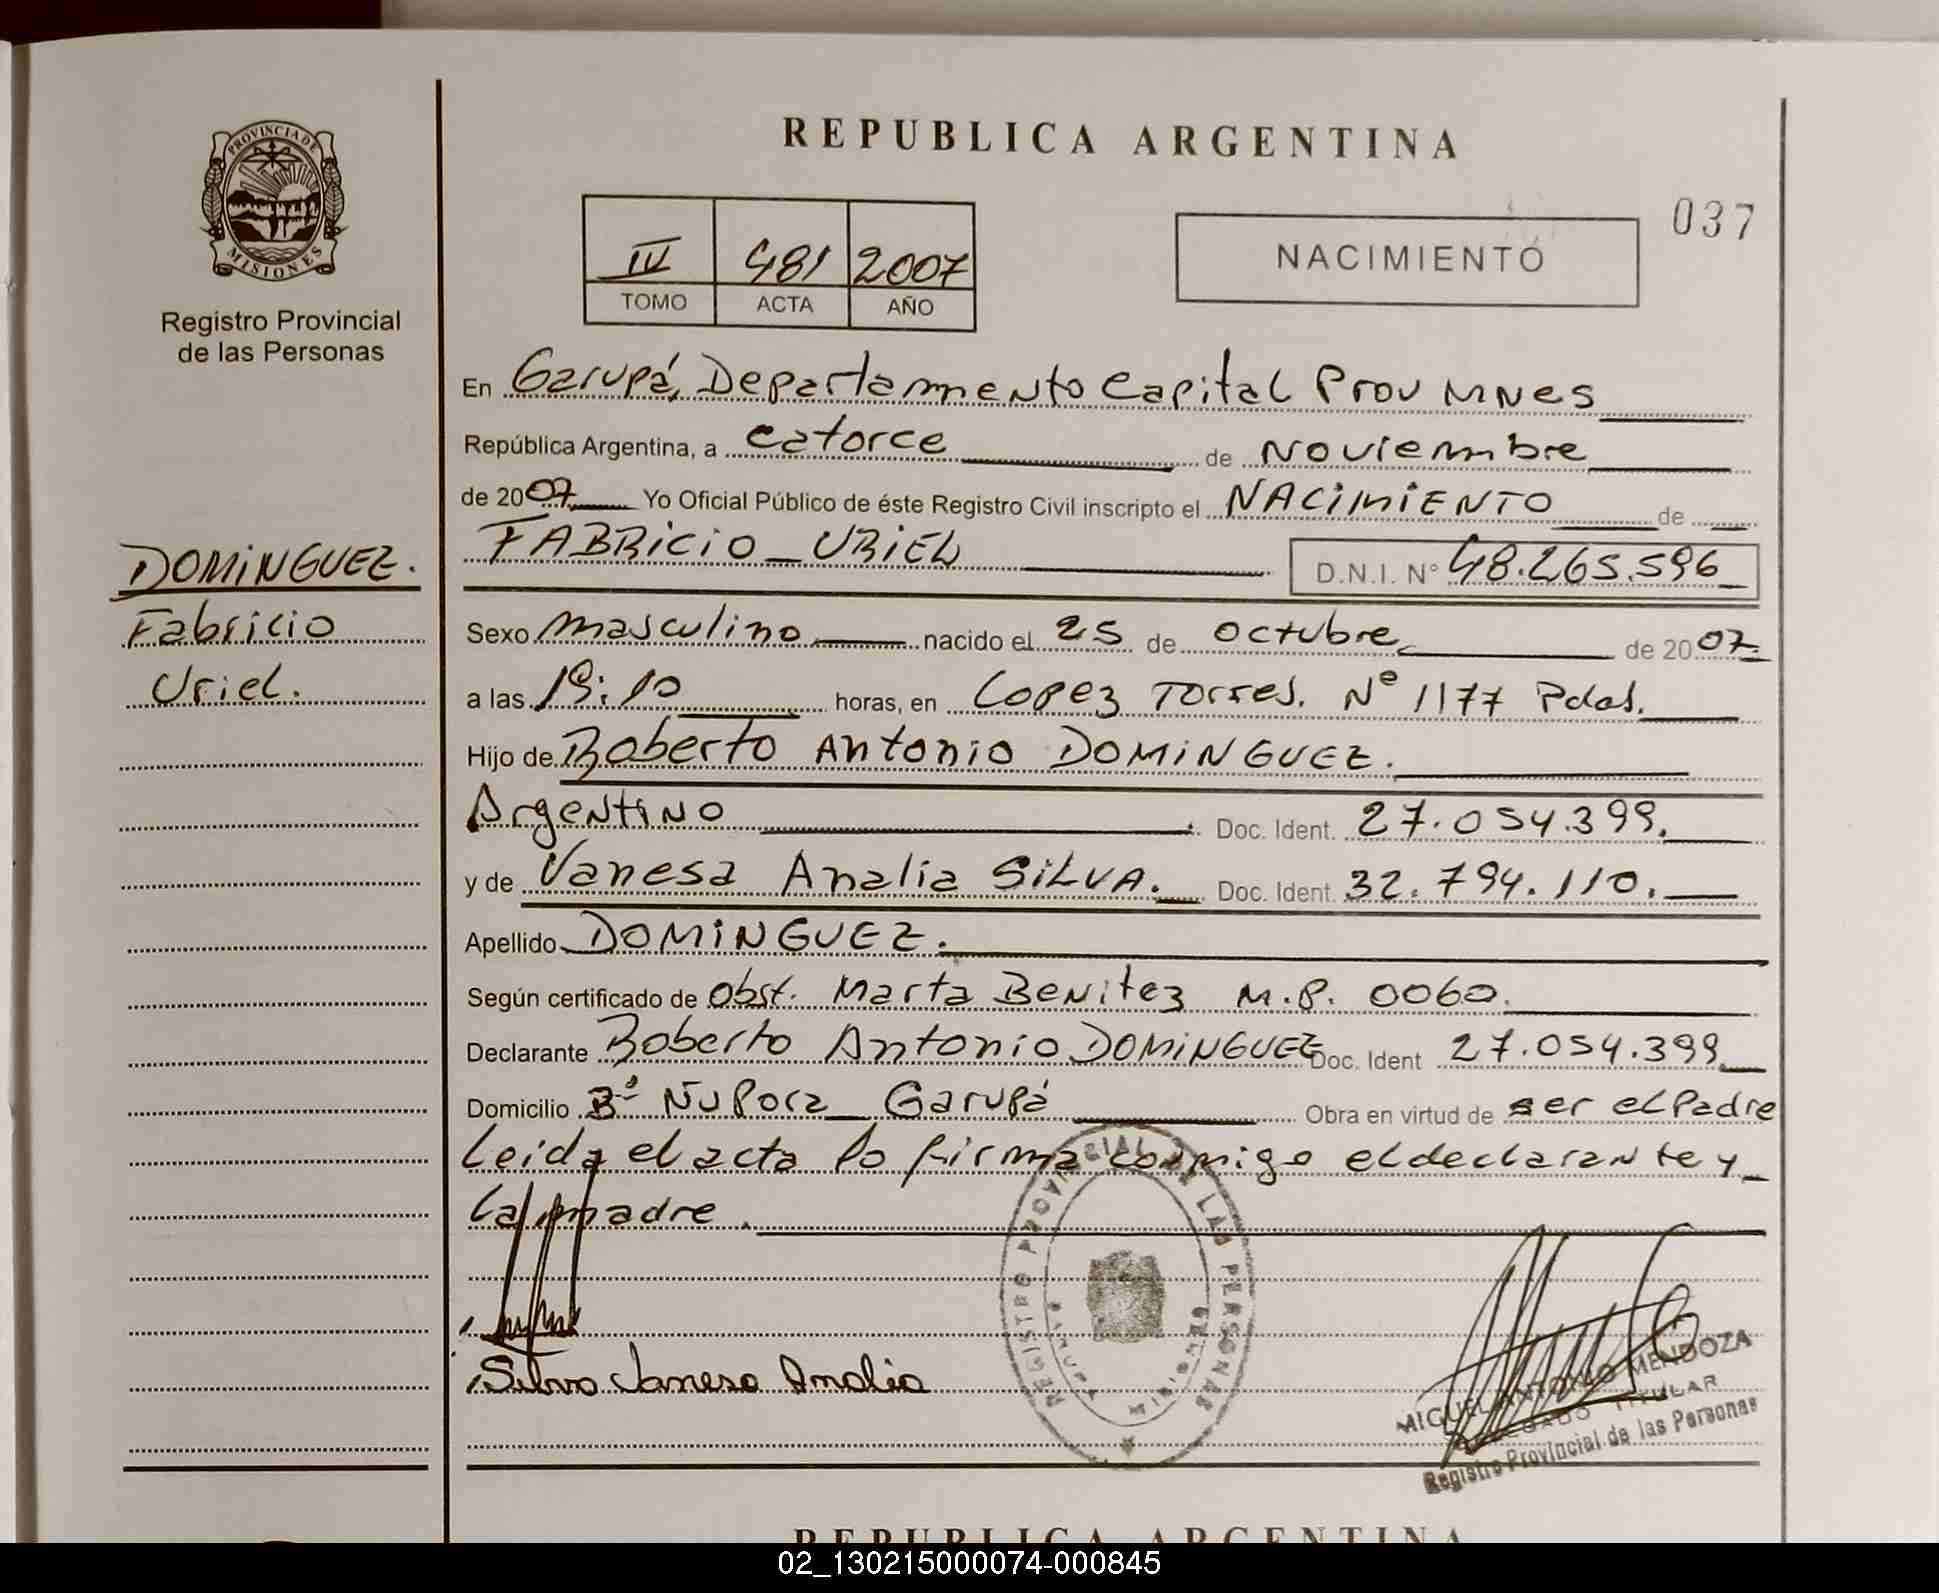 REPUBLICA ARGENTINA
PROVINCIA DE
MISIONES
Registro Provincial
de las Personas
IV 481 2007
TOMO ACTA AÑO
NACIMIENTO
037
En Garupá, Departamento Capital Prov MNes
República Argentina, a catorce de Noviembre
de 2007 Yo Oficial Público de éste Registro Civil inscripto el NACIMIENTO de
FABRICIO URIEL D.N.I. Nº 48.265.596
DOMINGUEZ.
Fabricio
Uriel.
Sexo masculino nacido el 25 de octubre de 2007.
a las 19:10 horas, en Lopez Torres. Nº 1177 Pdas.
Hijo de Roberto Antonio DOMINGUEZ.
Argentino Doc. Ident. 27.054.399.
y de Vanesa Analia SILVA. Doc. Ident. 32.794.110.
Apellido DOMINGUEZ.
Según certificado de Obst. Marta Benitez M.P. 0060.
Declarante Roberto Antonio DOMINGUEZ Doc. Ident 27.054.399
Domicilio Bº Ñu Pora Garupá Obra en virtud de ser el Padre
Leida el acta lo firma conmigo el declarante y
la madre.
Silva Vanesa Analia
REGISTRO PROVINCIAL DE LAS PERSONAS
GARUPA
MISIONES
MIGUEL ANTONIO MENDOZA
DELEGADO TITULAR
Registro Provincial de las Personas
REPUBLICA ARGENTINA
02_130215000074-000845